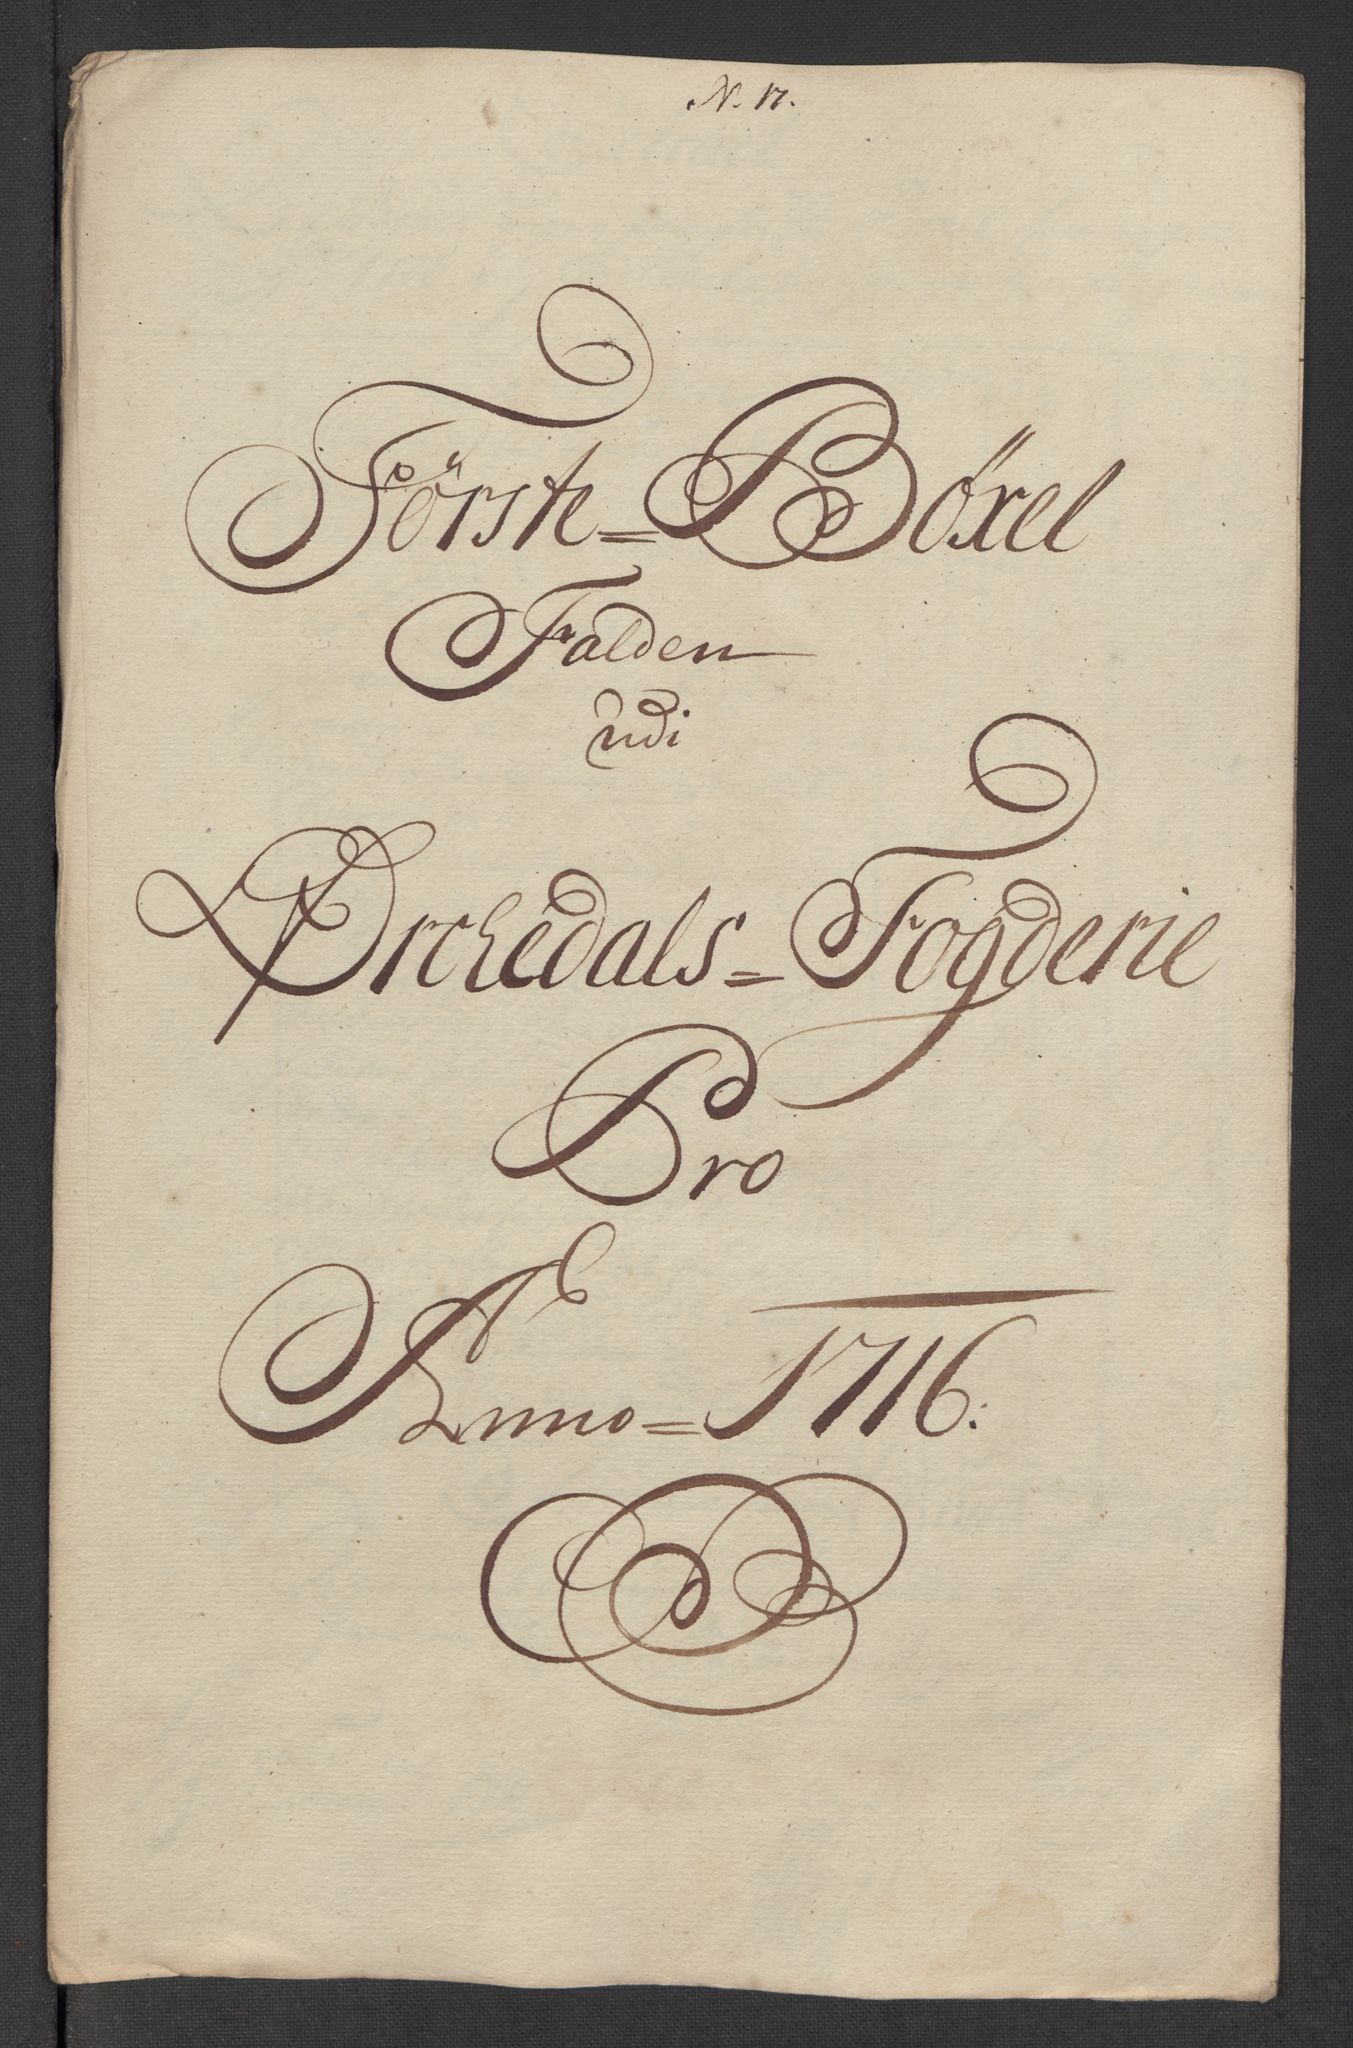 N. 17.
Förste= Böxel
Falden
udi
Ørchedals= Fogderie
Pro
Anno= 1716.